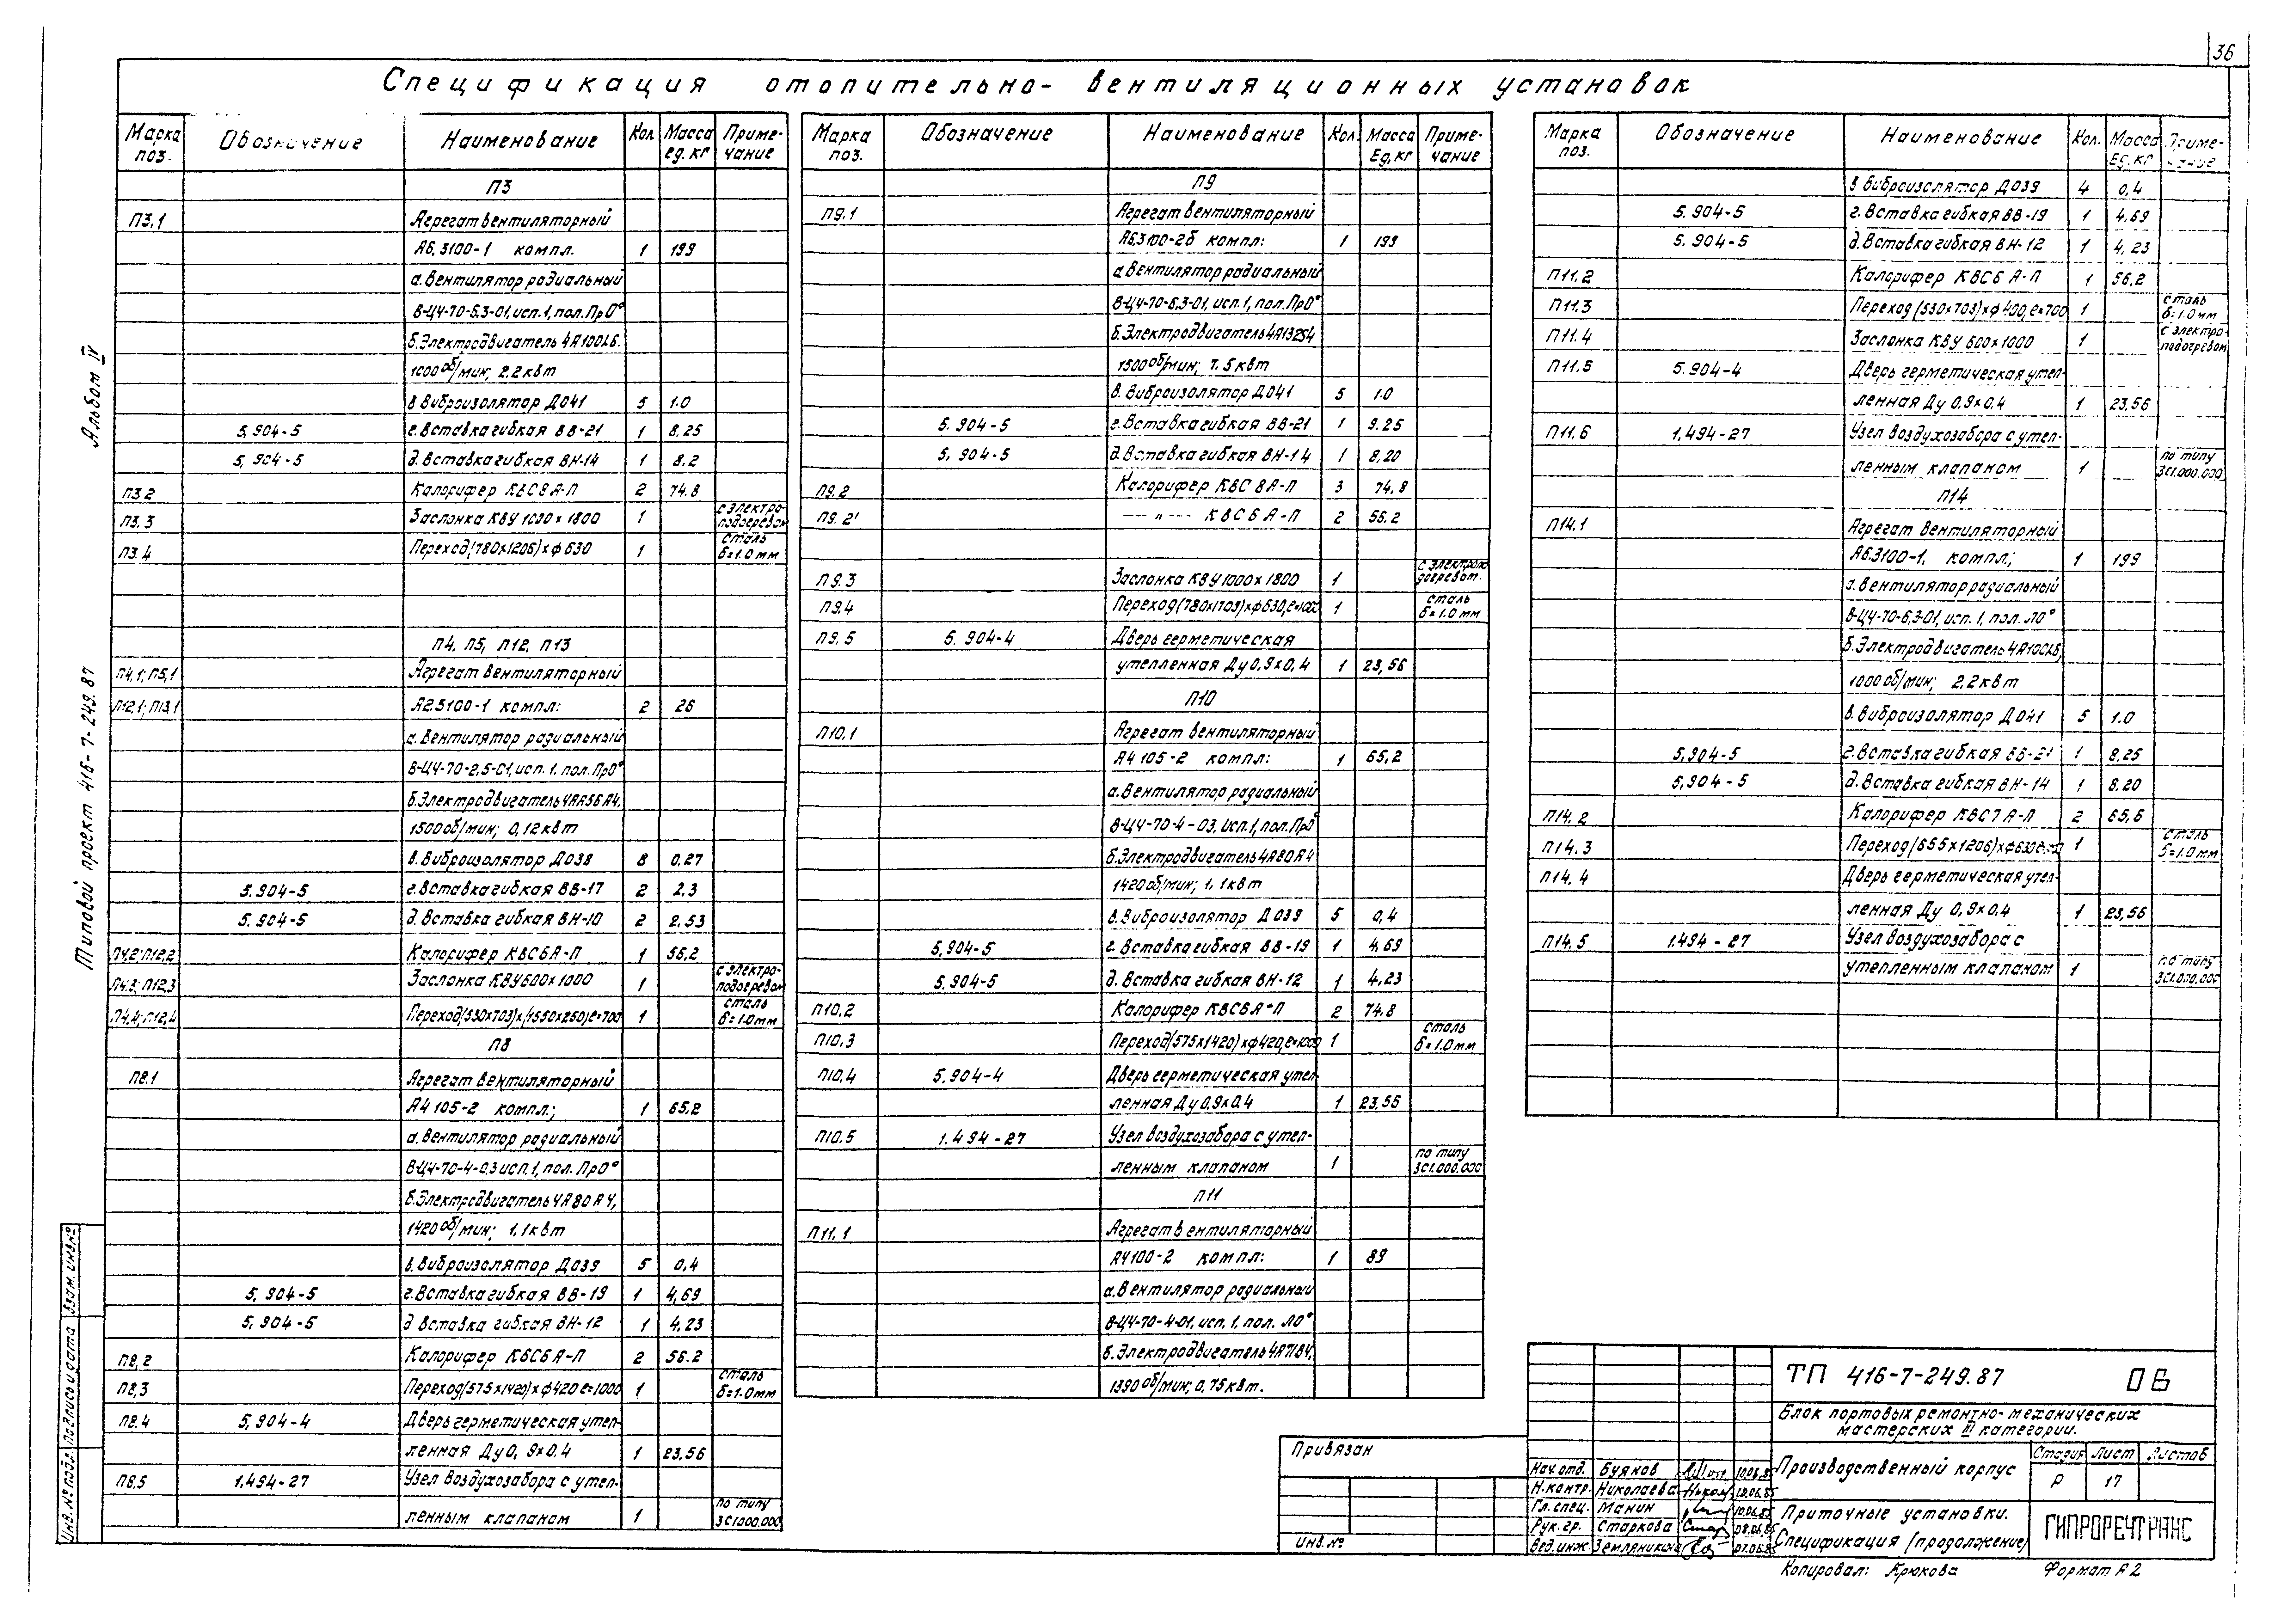 36
Спецификация отопительно- вентиляционных установок
Марка поз. Обозначение Наименование Кол. Масса ед.кг Примечание
П3
П3.1 Агрегат вентиляторный
А6,3100-1 компл. 1 199
а.Вентилятор радиальный
В-Ц4-70-6.3-01, исп.1, пол.Пр0°
б.Электродвигатель 4А100L6.
1000 об/мин; 2.2 квт
в Виброизолятор Д041 5 1.0
5,904-5 г.Вставка гибкая ВВ-21 1 8.25
5,904-5 д.Вставка гибкая ВН-14 1 8.2
П3.2 Калорифер КВС8А-П 2 74.8
П3.3 Заслонка КВУ 1000×1800 1 с электроподогревом
П3.4 Переход(780×1206)×ф630 1 сталь б=1.0мм
П4, П5, П12, П13
П4,1; П5,1 Агрегат вентиляторный
П12,1; П13,1 А2.5100-1 компл: 2 26
а. Вентилятор радиальный
В-Ц4-70-2,5-01, исп.1. пол.Пр0°
б.Электродвигатель 4АА56А4,
1500об/мин; 0,12квт
в.Виброизолятор Д038 8 0.27
5.904-5 г.Вставка гибкая ВВ-17 2 2.3
5.904-5 д.Вставка гибкая ВН-10 2 2.53
П4.2; П12,2 Калорифер КВС6А-П 1 56,2
П4.3; П12,3 Заслонка КВУ600×1000 1 с электроподогревом
П4.4; П12,4 Переход(530×703)×(1550×250)е=700 1 сталь б=1.0мм
П8
П8.1 Агрегат вентиляторный
А4 105-2 компл.; 1 65,2
а.Вентилятор радиальный
В-Ц4-70-4-03 исп.1, пол. Пр0°
б.Электродвигатель 4А80А4,
1420 об/мин; 1,1квт
в.Виброизолятор Д039 5 0,4
5,904-5 г.Вставка гибкая ВВ-19 1 4,69
5,904-5 д Вставка гибкая ВН-12 1 4.23
П8,2 Калорифер КВС6А-П 2 56.2
П8,3 Переход(575×1420)×ф420 е=1000 1 сталь б=1.0мм
П8.4 5,904-4 Дверь герметическая утеп-
ленная Ду0,9×0.4 1 23,56
П8,5 1.494-27 Узел воздухозабора с утеп-
ленным клапаном 1 по типу 3С1000.000
Марка поз. Обозначение Наименование Кол. Масса Ед.кг Примечание
П9
П9.1 Агрегат вентиляторный
А6,3100-2б компл: 1 199
а.Вентилятор радиальный
В-Ц4-70-6,3-01, исп.1, пол.Пр0°
б.Электродвигатель 4А132S4
1500об/мин; 7.5 квт
в. Виброизолятор Д041 5 1.0
5.904-5 г.Вставка гибкая ВВ-21 1 9.25
5,904-5 д.Вставка гибкая ВН-14 1 8,20
П9.2 Калорифер КВС 8А-П 3 74,8
П9.2' —— " —— КВС6А-П 2 56.2
П9.3 Заслонка КВУ1000×1800 1 с электроподогревом.
П9.4 Переход(780×1703)×ф630,е=1000 1 сталь б=1.0мм
П9.5 5.904-4 Дверь герметическая
утепленная Ду0.9×0,4 1 23,56
П10
П10.1 Агрегат вентиляторный
А4 105-2 компл: 1 65,2
а.Вентилятор радиальный
В-Ц4-70-4-03, исп.1, пол.Пр0°
б.Электродвигатель 4А80А4
1420 об/мин; 1,1квт
в.Виброизолятор Д039 5 0,4
5,904-5 г. Вставка гибкая ВВ-19 1 4.69
5.904-5 д. Вставка гибкая ВН-12 1 4,23
П10,2 Калорифер КВС6А-П 2 74.8
П10,3 Переход(575×1420)×ф420,е=1000 1 сталь б=1.0мм
П10,4 5,904-4 Дверь герметическая утеп-
ленная Ду0,9×0.4 1 23,56
П10.5 1.494-27 Узел воздухозабора с утеп-
ленным клапаном 1 по типу 3С1.000.000
П11
П11.1 Агрегат вентиляторный
А4100-2 компл: 1 89
а.Вентилятор радиальный
В-Ц4-70-4-01, исп.1, пол. Л0°
б.Электродвигатель 4А71В4,
1390 об/мин; 0,75квт.
Марка поз. Обозначение Наименование Кол. Масса Ед.кг Примечание
в виброизолятор Д039 4 0,4
5.904-5 г.Вставка гибкая ВВ-19 1 4.69
5.904-5 д.Вставка гибкая ВН-12 1 4,23
П11.2 Калорифер КВС6А-П 1 56,2
П11.3 Переход(530×703)×ф400,е=700 1 сталь б=1.0мм
П11.4 Заслонка КВУ 600×1000 1 с электроподогревом
П11.5 5.904-4 Дверь герметическая утеп-
ленная Ду 0.9×0,4 1 23,56
П11.6 1,494-27 Узел воздухозабора с утеп-
ленным клапаном 1 по типу 3С1.000.000
П14
П14.1 Агрегат вентиляторный
А6.3100-1, компл.; 1 199
а.вентилятор радиальный
В-Ц4-70-6,3-01, исп.1, пол. Л0°
б.Электродвигатель 4А100L6,
1000 об/мин; 2,2квт
в.виброизолятор Д041 5 1.0
5,904-5 г.Вставка гибкая ВВ-21 1 8,25
5,904-5 д.Вставка гибкая ВН-14 1 8.20
П14.2 Калорифер КВС7А-П 2 65,6
П14.3 Переход(655×1206)×ф630 1 сталь б=1.0мм
П14.4 Дверь герметическая утеп-
ленная Ду 0,9×0.4 1 23,56
П14.5 1.494-27 Узел воздухозабора с
утепленным клапаном 1 по типу 3С1.000.000
Альбом IV
Типовой проект 416-7-249.87
Взам. инв.№
Подпись и дата
Инв.№ подл.
Привязан
Инв.№
Нач.отд. Буянов 10.06.85
Н.контр. Николаева 10.06.85
Гл.спец. Манин 10.06.85
Рук.гр. Старкова 08.06.85
Вед.инж. Земляникина 07.06.85
ТП 416-7-249.87 ОВ
Блок портовых ремонтно-механических
мастерских III категории.
Производственный корпус
Стадия Лист Листов
Р 17
Приточные установки.
Спецификация (продолжение)
ГИПРОРЕЧТРАНС
Копировал: Крюкова Формат А2